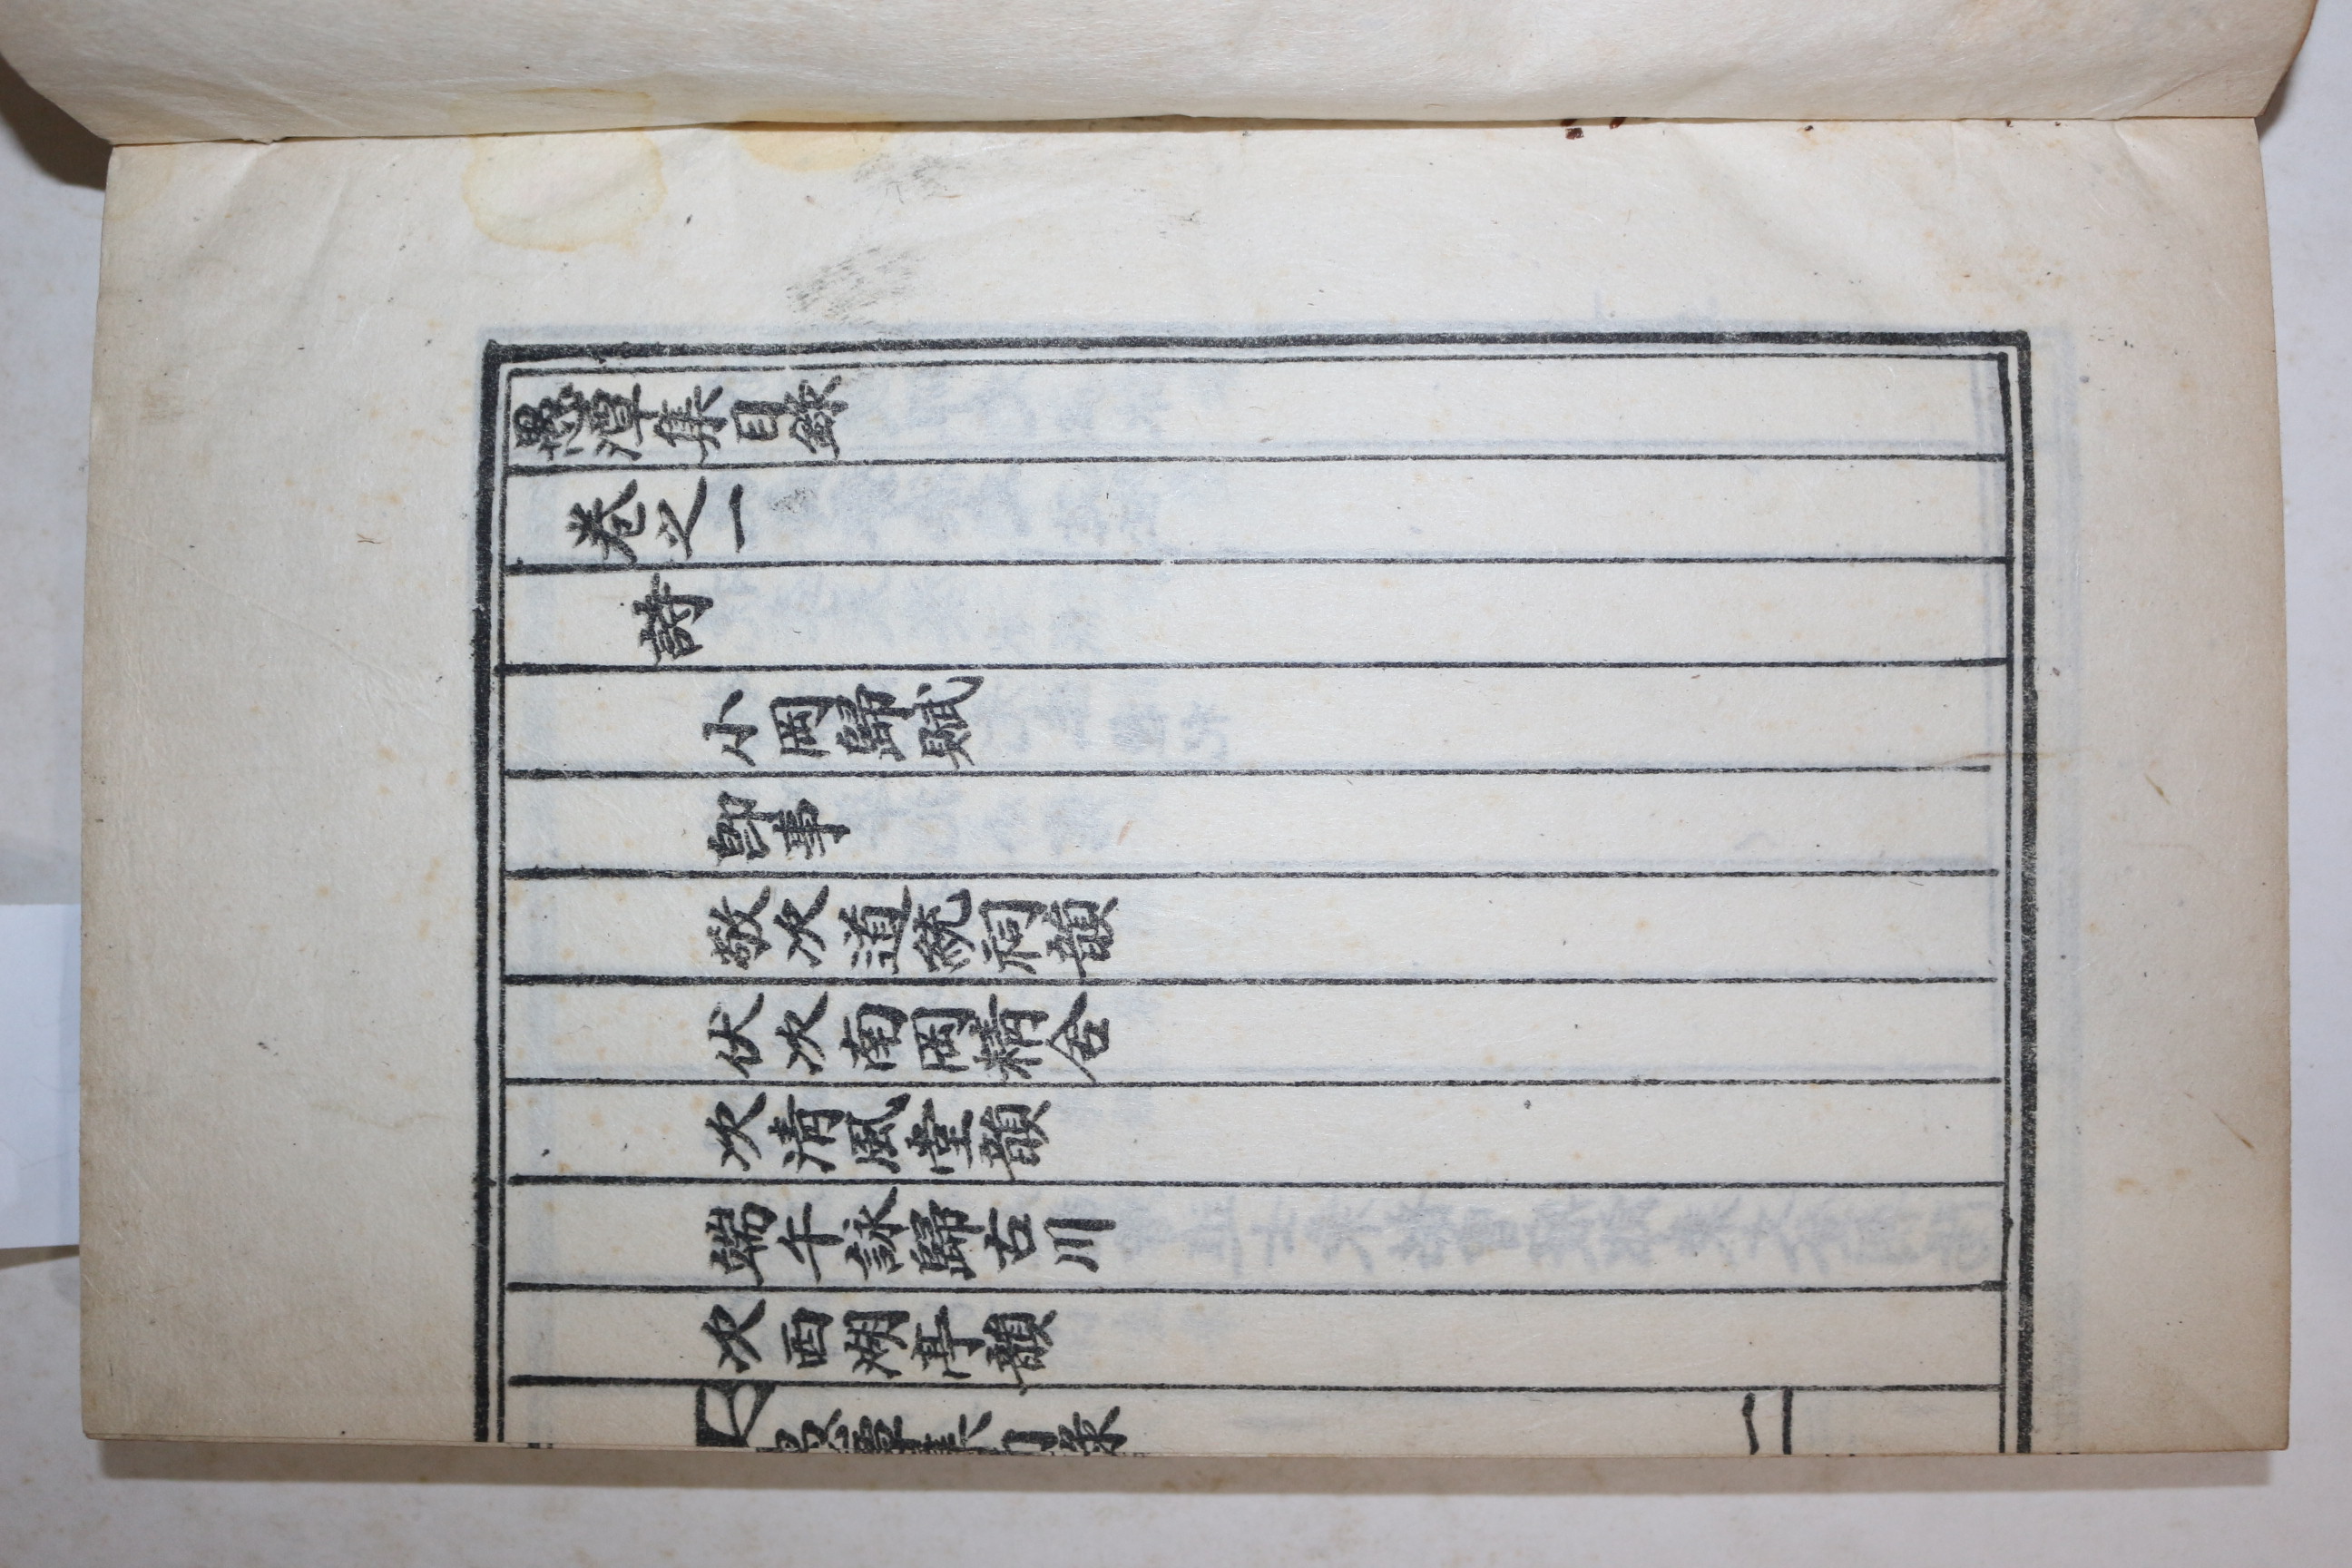 愚潭集目錄
卷之一
詩
小岡歸賦
卽事
敬次道統祠韻
伏次南岡精舍
次清風堂韻
端午詠歸古川
次西湖亭韻
愚潭集目錄
一